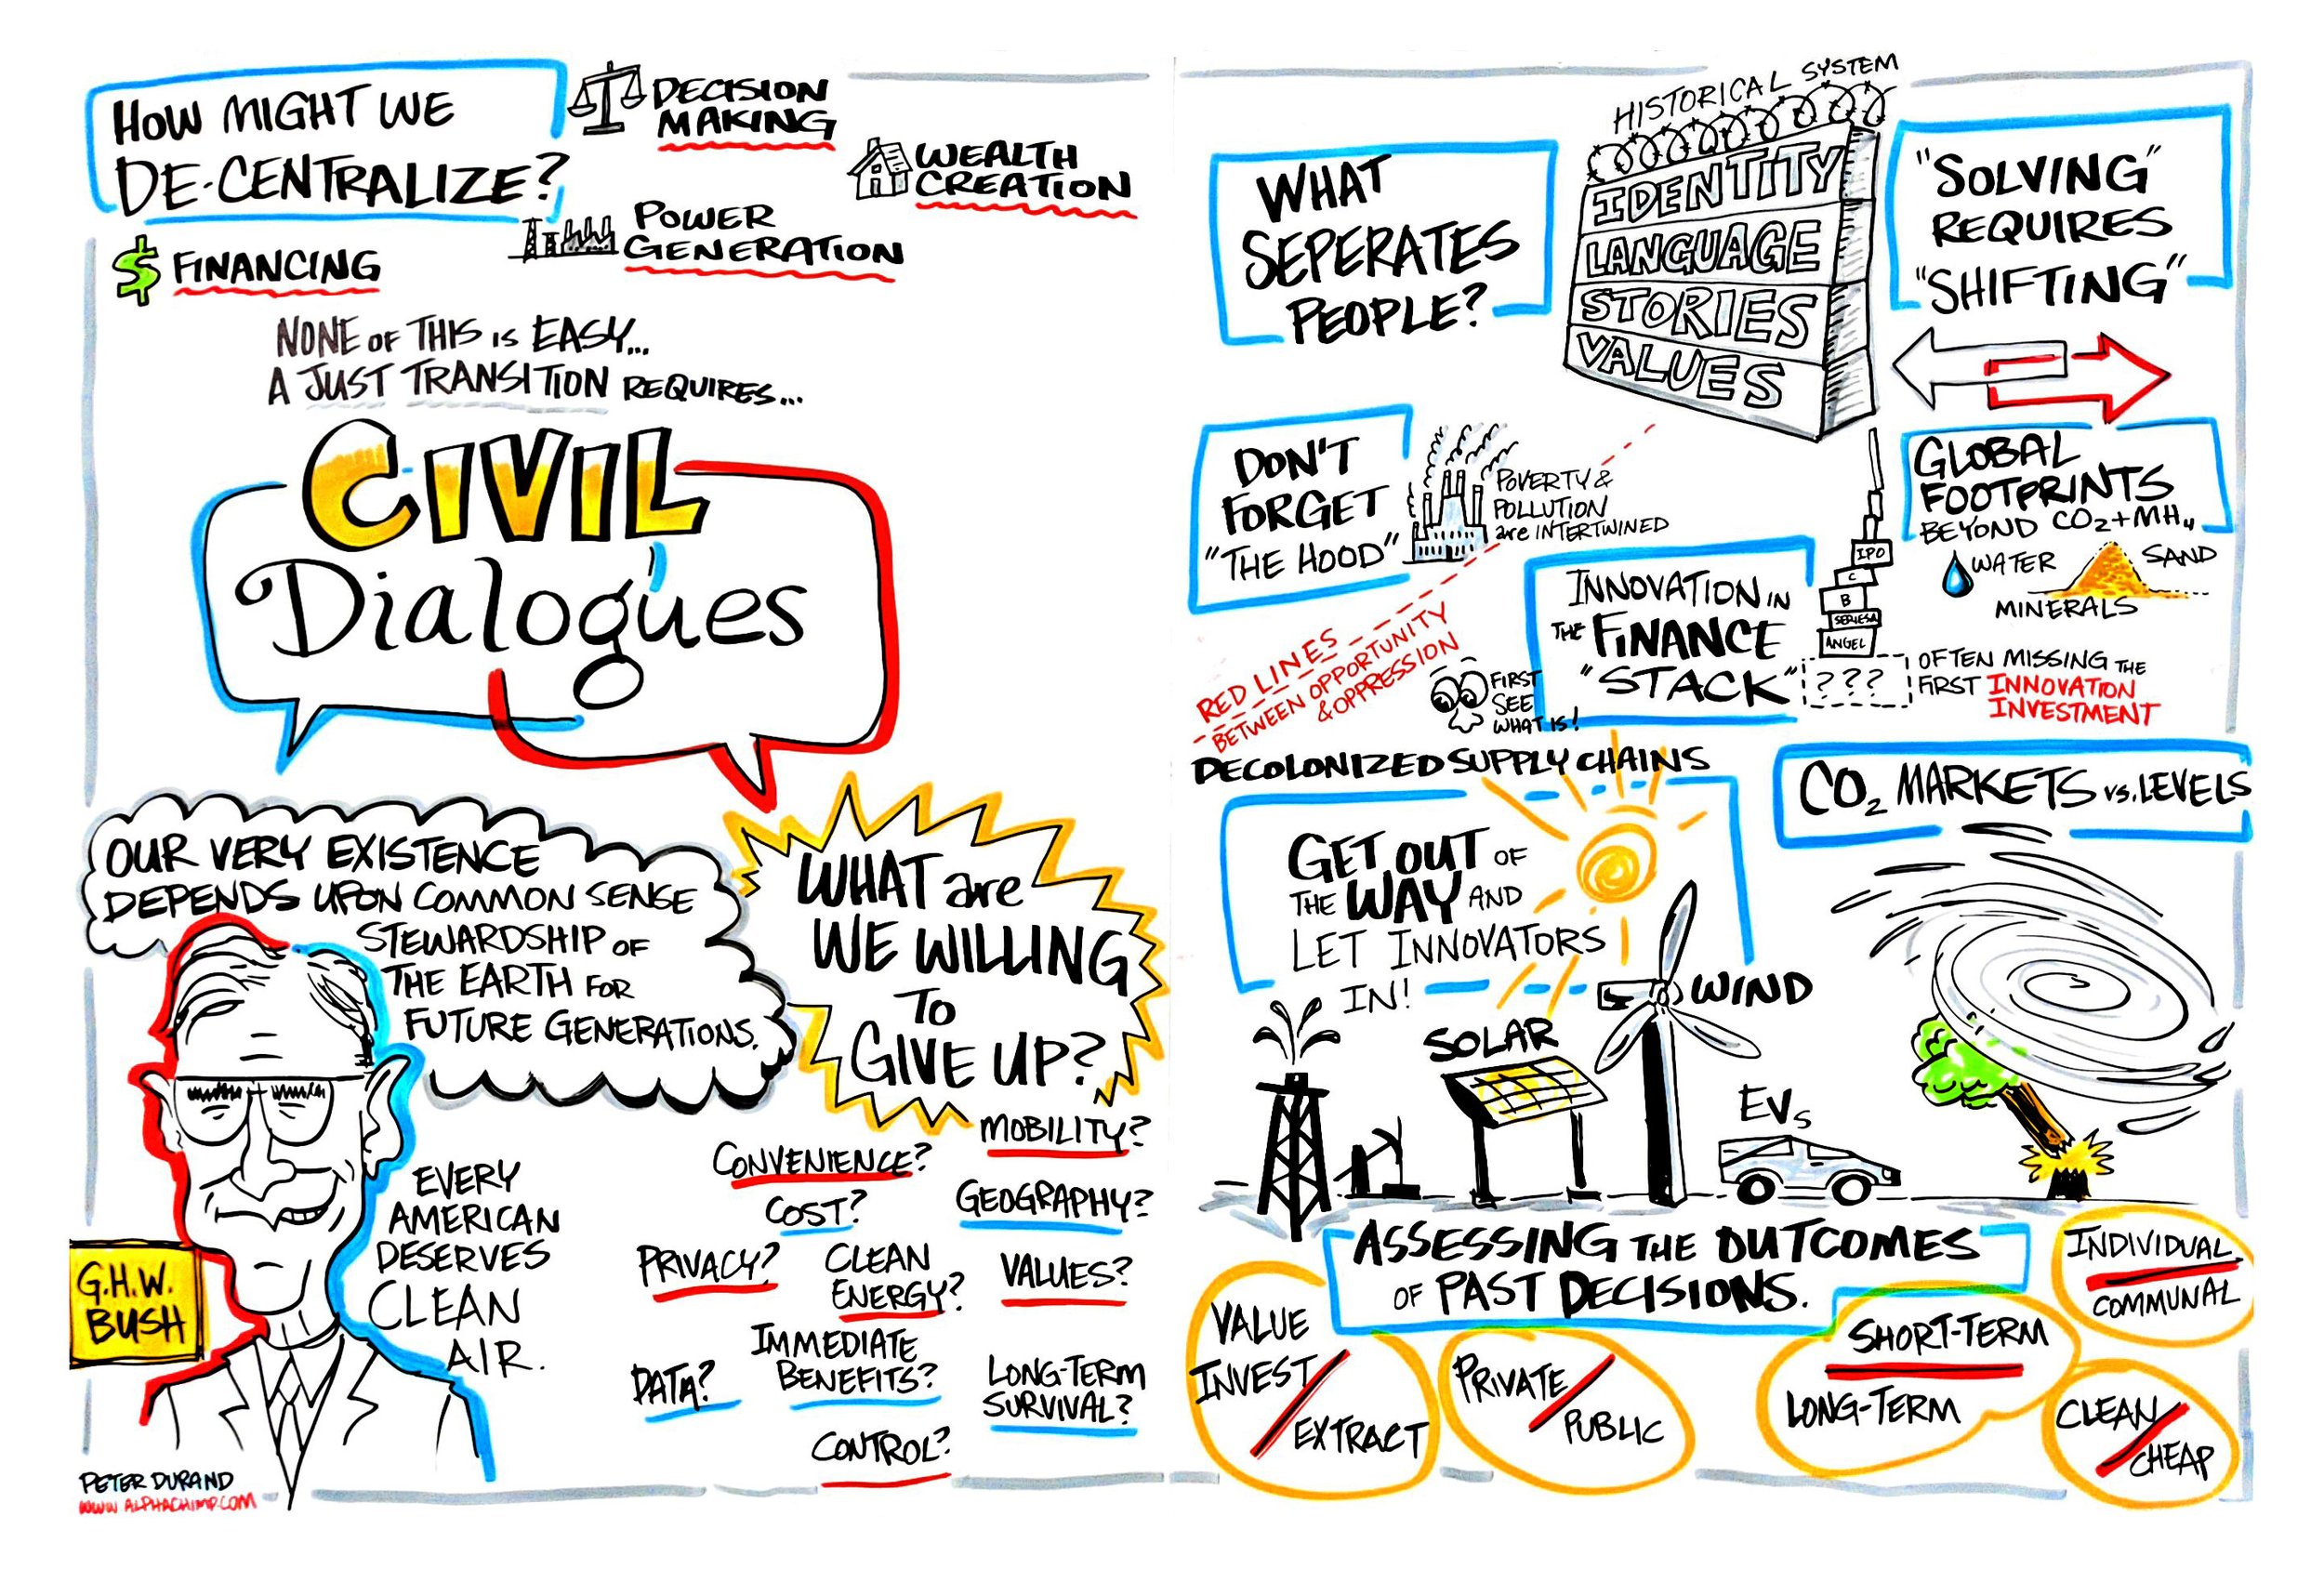 HOW MIGHT WE
DE-CENTRALIZE?
DECISION
MAKING
WEALTH
CREATION
POWER
GENERATION
$ FINANCING
NONE OF THIS IS EASY...
A JUST TRANSITION REQUIRES...
CIVIL
Dialogues
OUR VERY EXISTENCE
DEPENDS UPON COMMON SENSE
STEWARDSHIP OF
THE EARTH FOR
FUTURE GENERATIONS.
G.H.W.
BUSH
EVERY
AMERICAN
DESERVES
CLEAN
AIR.
PETER DURAND
WWW.ALPHACHIMP.COM
WHAT are
WE WILLING
TO
GIVE UP?
MOBILITY?
CONVENIENCE?
COST?
GEOGRAPHY?
PRIVACY?
CLEAN
ENERGY?
VALUES?
IMMEDIATE
BENEFITS?
DATA?
LONG-TERM
SURVIVAL?
CONTROL?
WHAT
SEPERATES
PEOPLE?
HISTORICAL SYSTEM
IDENTITY
LANGUAGE
STORIES
VALUES
"SOLVING"
REQUIRES
"SHIFTING"
DON'T
FORGET
"THE HOOD"
POVERTY &
POLLUTION
are INTERTWINED
RED LINES
BETWEEN OPPORTUNITY
& OPPRESSION
FIRST
SEE
WHAT IS!
INNOVATION IN
THE FINANCE
"STACK"
IPO
C
B
SERIES A
ANGEL
???
OFTEN MISSING THE
FIRST INNOVATION
INVESTMENT
GLOBAL
FOOTPRINTS
BEYOND CO2+MH4
WATER
SAND
MINERALS
DECOLONIZED SUPPLY CHAINS
GET OUT OF
THE WAY AND
LET INNOVATORS
IN!
SOLAR
WIND
EVs
CO2 MARKETS vs. LEVELS
ASSESSING THE OUTCOMES
OF PAST DECISIONS.
VALUE
INVEST
EXTRACT
PRIVATE
PUBLIC
SHORT-TERM
LONG-TERM
INDIVIDUAL
COMMUNAL
CLEAN
CHEAP